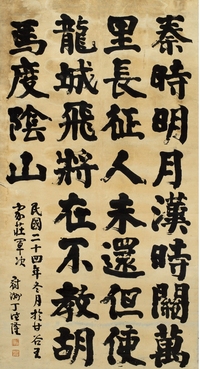 秦時明月漢時關萬
里長征人未還但使
龍城飛將在不教胡
馬度陰山
民國二十四年冬月於甘谷王
家莊軍次
丁隆